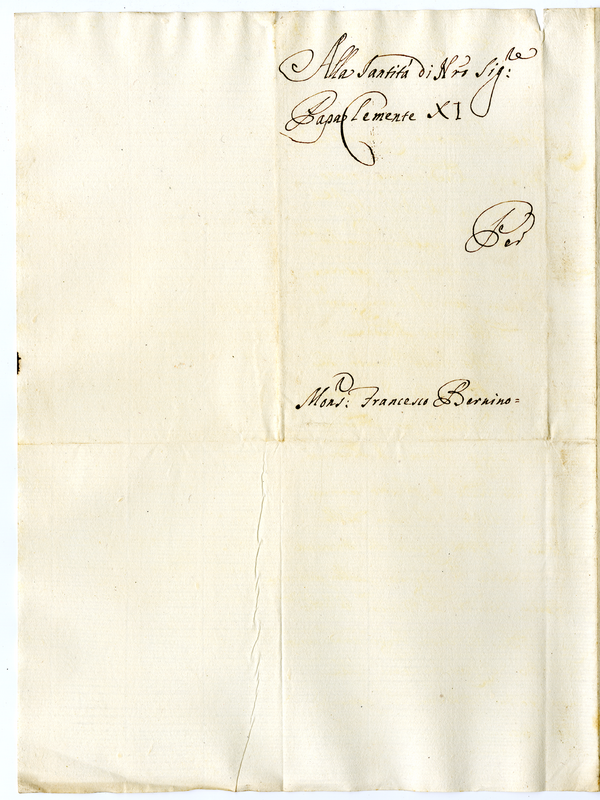 Alla Santità di Nrõ Sig:re
Papa Clemente XI
Per
Mons:r Francesco Bernino=